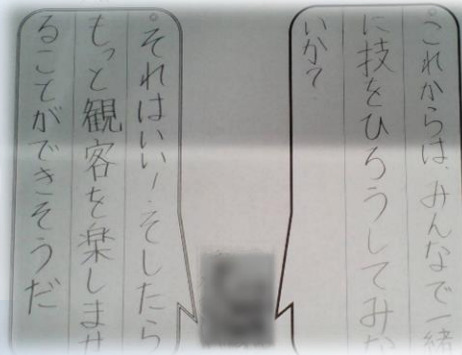 。これからは、みんなで一緒
に技をひろうしてみな
いか?
。それはいい!そしたら
もっと観客を楽しませ
ることができそうだ